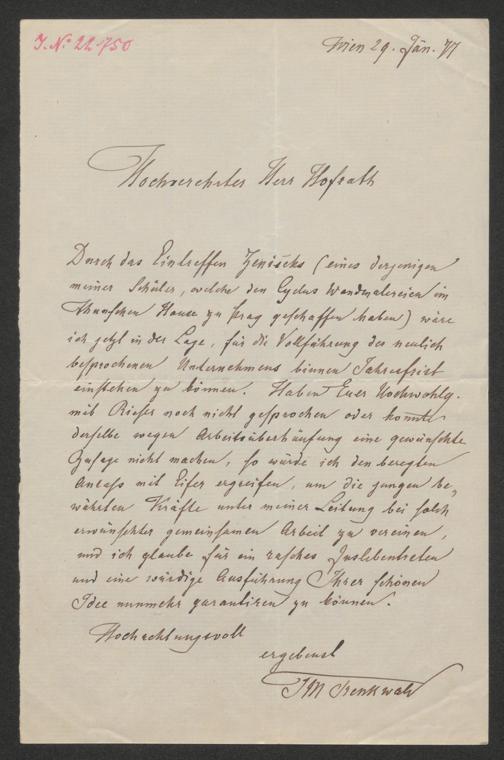 J. No 22.750
Wien 29. Jän. 77
Hochverehrter Herr Hofrath
Durch das Eintreffen Zeniseks (eines derjenigen
meiner Schüler, welche den Cyclus Wandmalereien im
Thunschen Hause zu Prag geschaffen haben) wäre
ich jetzt in der Lage, für die Vollführung des neulich
besprochenen Unternehmens binnen Jahresfrist
einstehen zu können. Haben Euer Hochwohlg.
mit Rieser noch nicht gesprochen oder konnte
derselbe wegen Arbeitsüberhäufung eine gewünschte
Zusage nicht machen, so würde ich den beregten
Anlass mit Eifer ergreifen, um die jungen be„
währten Kräfte unter meiner Leitung bei solch
erwünschter gemeinsamen Arbeit zu vereinen,
und ich glaube für ein rasches Inslebentreten
und eine würdige Ausführung Ihrer schönen
Idee nunmehr garantiren zu können.
Hochachtungsvoll
ergebenst
JM Trenkwald